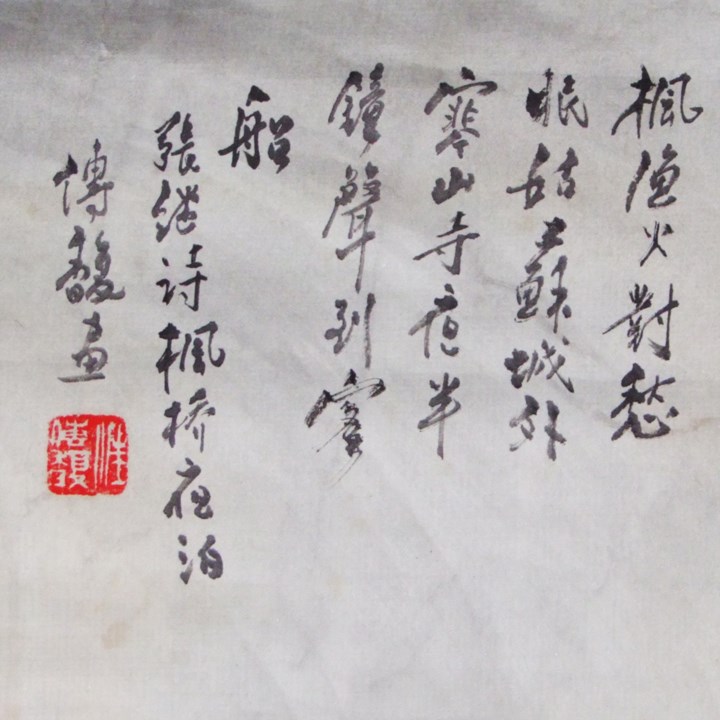 楓渔火對愁
眠姑蘇城外
寒山寺夜半
鐘聲到客
船
張继诗楓桥夜泊
愽馥画